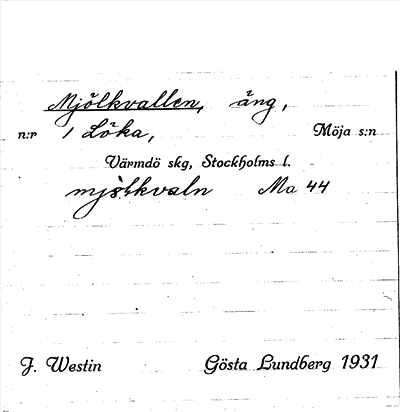 Mjölkvallen, äng,
n:r 1 Löka, Möja s:n
Värmdö skg, Stockholms l.
mjölkvaln Ma 44
J. Westin Gösta Lundberg 1931